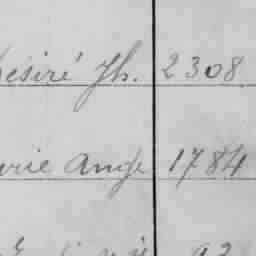 Desiré Jh. 2308
rie Ange 1784